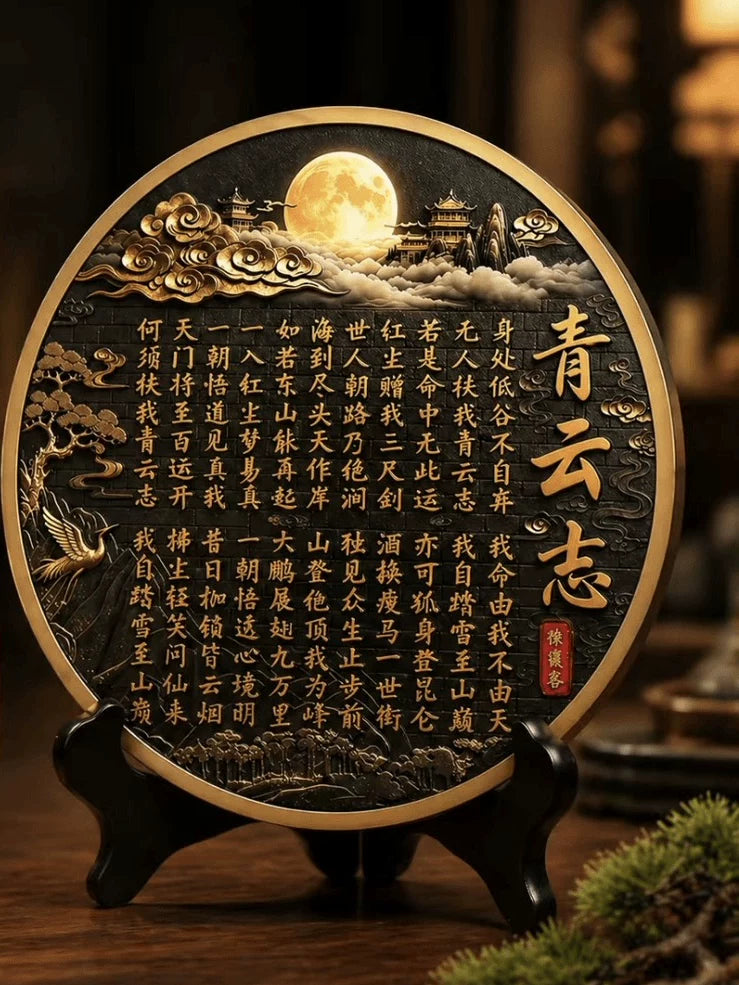 青云志
身处低谷不自弃 我命由我不由天
无人扶我青云志 我自踏雪至山巅
若是命中无此运 亦可狐身登昆仑
红尘赠我三尺剑 酒换瘦马一世街
世人朝路乃绝涧 独见众生止步前
海到尽头天作岸 山登绝顶我为峰
如若东山能再起 大鹏展翅九万里
一入红尘梦易真 一朝悟透心境明
一朝悟道见真我 昔日枷锁皆云烟
天门将至百运开 拂尘轻笑问仙来
何须扶我青云志 我自踏雪至山巅